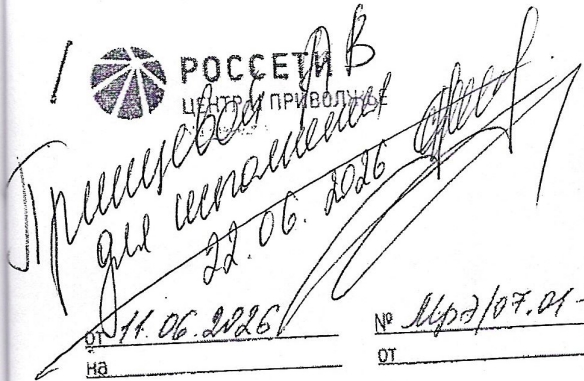 РОССЕТИ
ЦЕНТР И ПРИВОЛЖЬЕ
для исполнения
22.06.2026
от 11.06.2026 № Мрэ/07.01-
на от